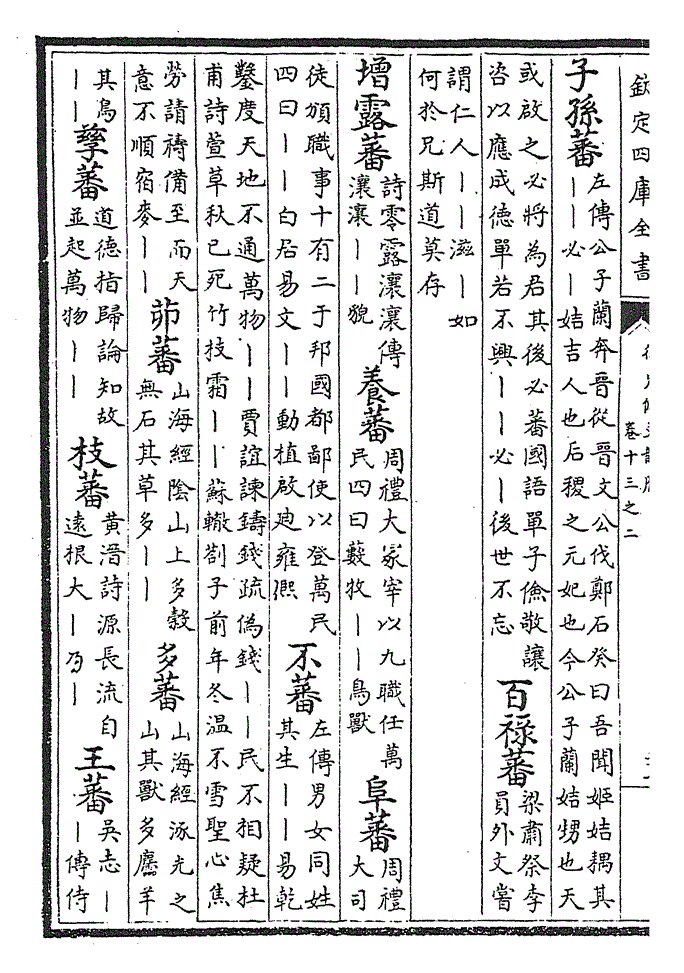 欽定四庫全書
卷十三之二
子孫蕃 左傳公子蘭奔晉從晉文公伐鄭石癸曰吾聞姬姞耦其
丨丨必丨姞吉人也后稷之元妃也今公子蘭姞甥也天
或啟之必將為君其後必蕃國語單子儉敬讓
咨以應成徳單若不興丨丨必丨後世不忘
百禄蕃 梁肅祭李
員外文嘗
謂仁人丨丨滋丨如
何於兄斯道莫存
増露蕃 詩零露瀼瀼傳
瀼瀼丨貌
養蕃 周禮大冢宰以九職任萬
民四曰藪牧丨丨鳥獸
阜蕃 周禮
大司
徒頒職事十有二于邦國都鄙使以登萬民
四曰丨丨白居易文丨丨動植啟廸雍熈
不蕃 左傳男女同姓
其生丨丨易乾
鑿度天地不通萬物丨丨賈誼諫鑄錢疏偽錢丨丨民不相疑杜
甫詩萱草秋已死竹枝霜丨丨蘇轍劄子前年冬温不雪聖心焦
勞請禱備至而天
意不順宿麥丨丨
茆蕃 山海經陰山上多榖
無石其草多丨丨
多蕃 山海經涿光之
山其獸多麢羊
其鳥
丨丨
孳蕃 道德指歸論知故
並起萬物丨丨
枝蕃 黄溍詩源長流自
遠根大丨乃丨
王蕃 吳志丨
丨傳侍